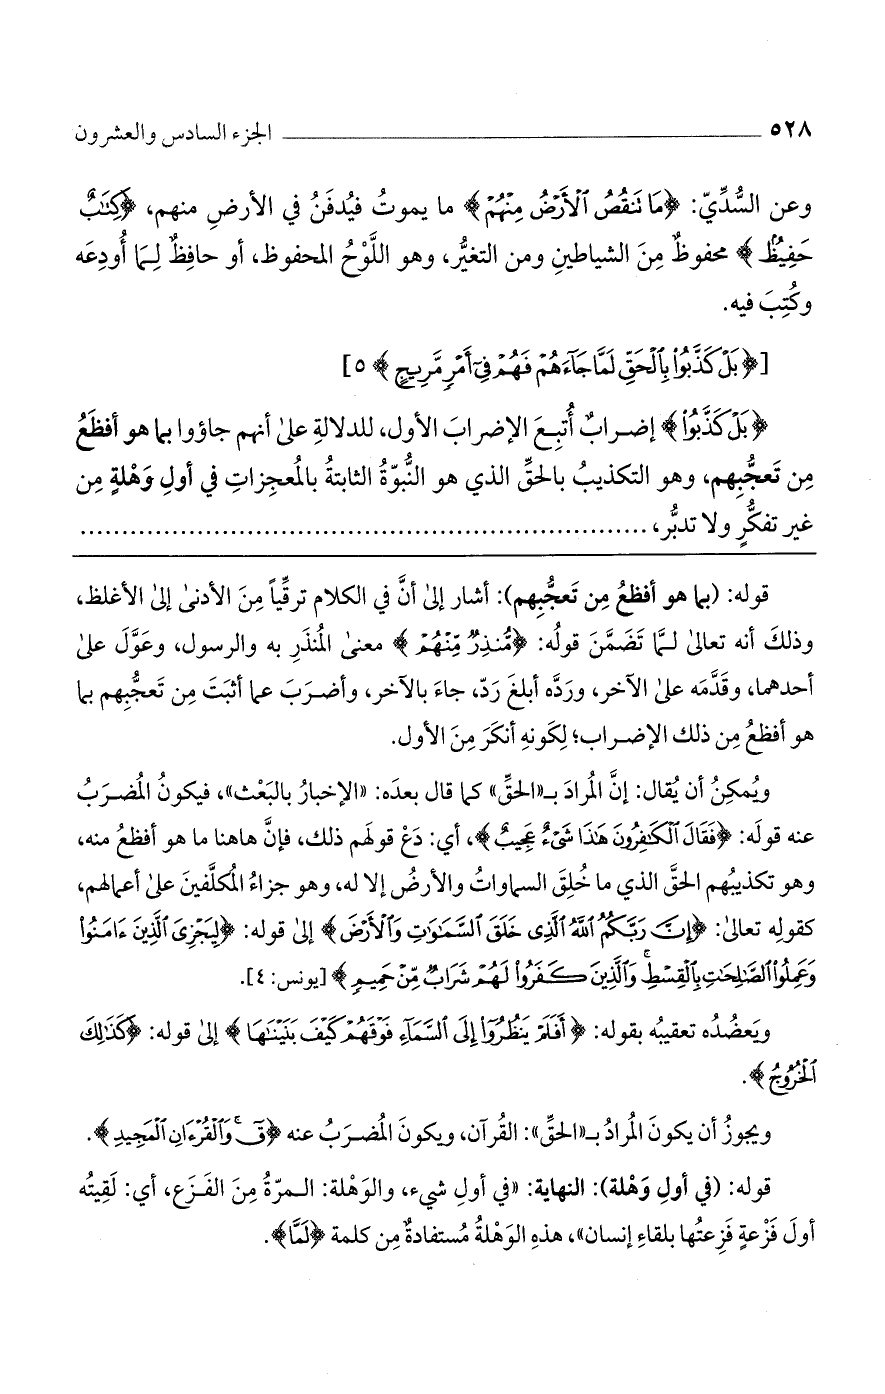 ٥٢٨ ــــــ الجزء السادس والعشرون
وعن السُّدِّيّ: ﴿مَا تَنقُصُ ٱلْأَرْضُ مِنْهُمْ﴾ ما يموتُ فيُدفَنُ في الأرضِ منهم، ﴿كِتَٰبٌ
حَفِيظٌ﴾ محفوظٌ مِنَ الشياطينِ ومن التغيُّر، وهو اللَّوْحُ المحفوظ، أو حافِظٌ لِـمَا أُودِعَه
وكُتِبَ فيه.
[﴿بَلْ كَذَّبُوا۟ بِٱلْحَقِّ لَمَّا جَآءَهُمْ فَهُمْ فِىٓ أَمْرٍ مَّرِيجٍ﴾ ٥]
﴿بَلْ كَذَّبُوا۟﴾ إضرابٌ أُتبِعَ الإضرابَ الأول، للدلالةِ علىٰ أنهم جاؤوا بما هو أفظَعُ
مِن تَعجُّبِهم، وهو التكذيبُ بالحقِّ الذي هو النُّبوّةُ الثابتةُ بالمُعجِزاتِ في أولِ وَهْلةٍ مِن
غير تفكُّرٍ ولا تدبُّر، ..................................................................
قوله: (بما هو أفظعُ مِن تَعجُّبِهم): أشار إلىٰ أنَّ في الكلام ترقِّياً مِنَ الأدنىٰ إلىٰ الأغلظ،
وذلكَ أنه تعالىٰ لـمَّا تَضَمَّنَ قولُه: ﴿مُّنذِرٌ مِّنْهُمْ﴾ معنىٰ المُنذَرِ به والرسول، وعَوَّلَ علىٰ
أحدهما، وقَدَّمَه علىٰ الآخر، ورَدَّه أبلغَ رَدّ، جاءَ بالآخر، وأضرَبَ عما أثبَتَ مِن تَعجُّبِهم بما
هو أفظعُ مِن ذلك الإضراب؛ لِكَونهِ أنكَرَ مِنَ الأول.
ويُمكِنُ أن يُقال: إنَّ المُرادَ بـ«الحقِّ» كما قال بعدَه: «الإخبارُ بالبَعْث»، فيكونُ المُضرَبُ
عنه قولَه: ﴿فَقَالَ ٱلْكَٰفِرُونَ هَٰذَا شَىْءٌ عَجِيبٌ﴾، أي: دَعْ قولَهم ذلك، فإنَّ هاهنا ما هو أفظعُ منه،
وهو تكذيبُهم الحقَّ الذي ما خُلِقَ السماواتُ والأرضُ إلا له، وهو جزاءُ المُكلَّفينَ علىٰ أعمالهم،
كقولِه تعالىٰ: ﴿إِنَّ رَبَّكُمُ ٱللَّهُ ٱلَّذِى خَلَقَ ٱلسَّمَٰوَٰتِ وَٱلْأَرْضَ﴾ إلىٰ قوله: ﴿لِيَجْزِىَ ٱلَّذِينَ ءَامَنُوا۟
وَعَمِلُوا۟ ٱلصَّٰلِحَٰتِ بِٱلْقِسْطِ ۚ وَٱلَّذِينَ كَفَرُوا۟ لَهُمْ شَرَابٌ مِّنْ حَمِيمٍ﴾ [يونس: ٤].
ويَعضُدُه تعقيبُه بقوله: ﴿أَفَلَمْ يَنظُرُوٓا۟ إِلَى ٱلسَّمَآءِ فَوْقَهُمْ كَيْفَ بَنَيْنَٰهَا﴾ إلىٰ قوله: ﴿كَذَٰلِكَ
ٱلْخُرُوجُ﴾.
ويجوزُ أن يكونَ المُرادُ بـ«الحقِّ»: القُرآن، ويكونَ المُضرَبُ عنه ﴿قٓ ۚ وَٱلْقُرْءَانِ ٱلْمَجِيدِ﴾.
قوله: (في أولِ وَهْلة): النهاية: «في أولِ شيء، والوَهْلة: الـمرّةُ مِنَ الفَـزَع، أي: لَقِيتُه
أولَ فَزْعةٍ فَزِعتُها بلقاءِ إنسان»، هذهِ الوَهْلةُ مُستفادةٌ مِن كلمة ﴿لَمَّا﴾.